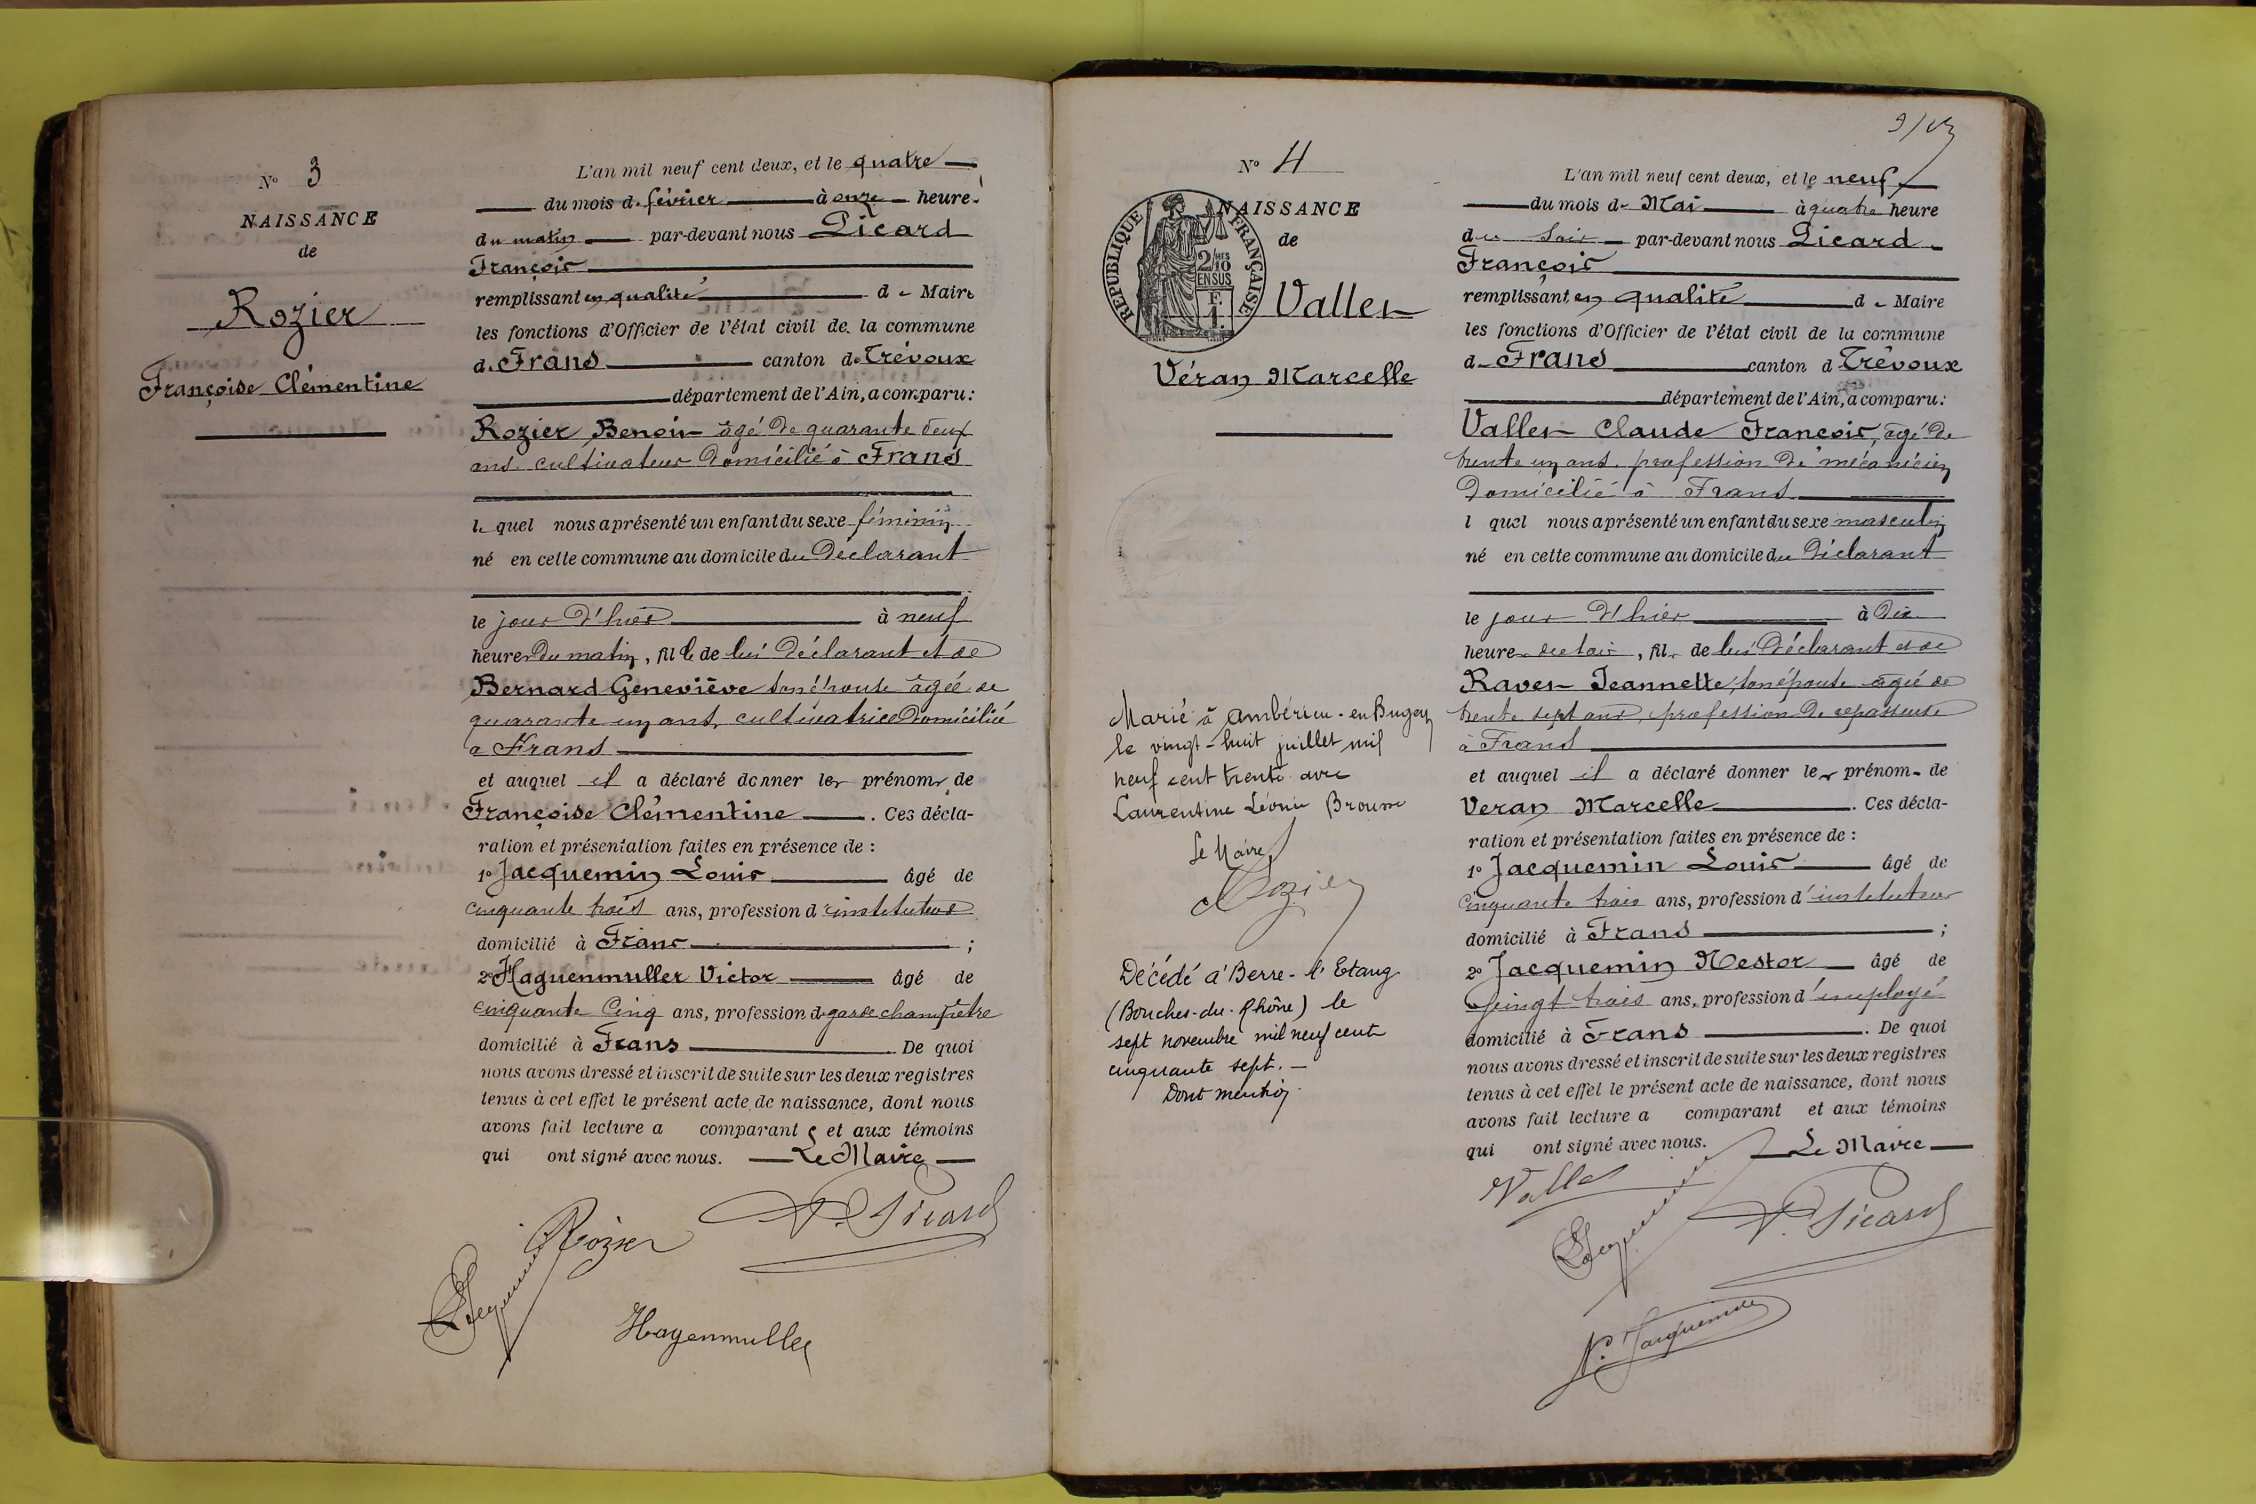 N° 3
NAISSANCE
de
Rozier
Françoise Clémentine
L'an mil neuf cent deux, et le quatre
du mois de février à onze heures
du matin par-devant nous Picard
François
remplissant en qualité de Maire
les fonctions d'Officier de l'état civil de la commune
de Frans canton de Trévoux
département de l'Ain, a comparu :
Rozier Benoit âgé de quarante deux
ans cultivateur domicilié à Frans
le quel nous a présenté un enfant du sexe féminin
né en cette commune au domicile du déclarant
le jour d'hier à neuf
heures du matin, fille de lui déclarant et de
Bernard Geneviève son épouse âgée de
quarante un ans, cultivatrice domiciliée
à Frans
et auquel il a déclaré donner les prénoms de
Françoise Clémentine. Ces décla-
ration et présentation faites en présence de :
1° Jacquemin Louis âgé de
cinquante trois ans, profession d'instituteur
domicilié à Frans ;
2° Haguenmuller Victor âgé de
cinquante cinq ans, profession de garde champêtre
domicilié à Frans. De quoi
nous avons dressé et inscrit de suite sur les deux registres
tenus à cet effet le présent acte de naissance, dont nous
avons fait lecture a comparant et aux témoins
qui ont signé avec nous. Le Maire
Rozier
F. Picard
L. Jacquemin
Hagenmuller
N° 4
NAISSANCE
de
REPUBLIQUE FRANÇAISE
2/10 MES
EN SUS
F.
1.
Vallet
Véran Marcelle
Marié à Ambérieu-en-Bugey
le vingt-huit juillet mil
neuf cent trente avec
Laurentine Léonie
Le Maire
Rozier
Décédé à Berre-l'Etang
(Bouches-du-Rhône) le
sept novembre mil neuf cent
cinquante sept.-
Dont mention
L'an mil neuf cent deux, et le neuf
du mois de Mai à quatre heure
du soir par-devant nous Picard
François
remplissant en qualité de Maire
les fonctions d'Officier de l'état civil de la commune
de Frans canton d Trévoux
département de l'Ain, a comparu :
Vallet Claude François, âgé de
trente un ans, profession de mécanicien
domicilié à Frans
l quel nous a présenté un enfant du sexe masculin
né en cette commune au domicile du déclarant
le jour d'hier à dix
heures du soir, fils de lui déclarant et de
Ravet Jeannette, son épouse âgée de
trente sept ans, profession de repasseuse
à Frans
et auquel il a déclaré donner les prénoms de
Veran Marcelle. Ces décla-
ration et présentation faites en présence de :
1° Jacquemin Louis âgé de
cinquante trois ans, profession d'instituteur
domicilié à Frans ;
2° Jacquemin Nestor âgé de
vingt trois ans, profession d'employé
domicilié à Frans. De quoi
nous avons dressé et inscrit de suite sur les deux registres
tenus à cet effet le présent acte de naissance, dont nous
avons fait lecture a comparant et aux témoins
qui ont signé avec nous. Le Maire
Vallet
L. Jacquemin
F. Picard
N. Jacquemin